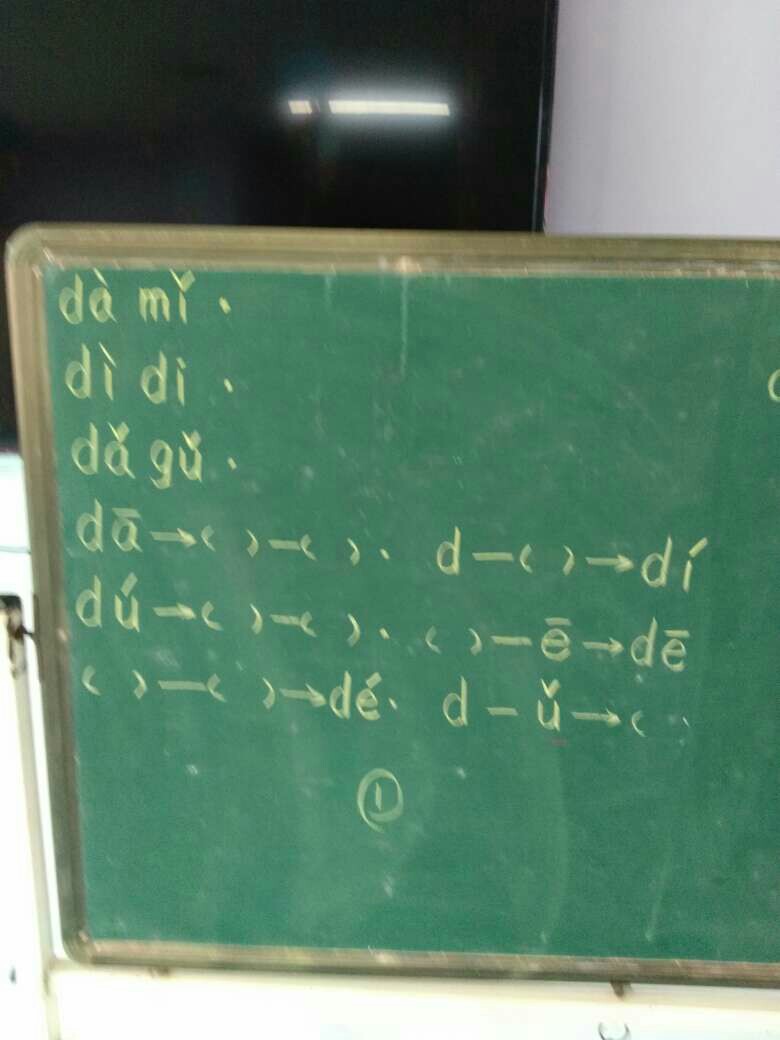 dà mǐ.
dì di.
dǎ gǔ.
dā→( )—( ). d—( )→dí
dú→( )—( ). ( )—ē→dē
( )—( )→dé. d—ǔ→( )
①